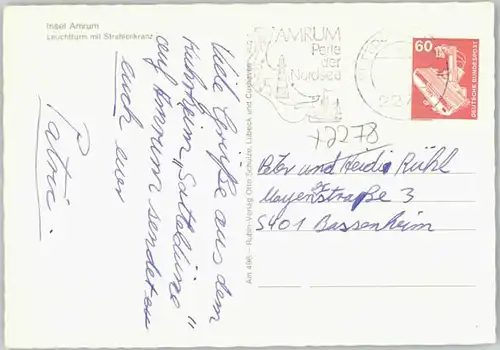 Insel Amrum
Leuchtturm mit Strahlenkranz
Viele Grüße aus dem
Kuhrheim „Satteldüne"
auf Amrum sendet eu
euch euer
Patric
Am 496 - Rubin-Verlag Otto Schütze, Lübeck und Cuxhaven
AMRUM
Perle
der
Nordsee
60
DEUTSCHE BUNDESPOST
+2278
Peter und Heidi Rühl
Mayenstraße 3
5401 Bassenheim